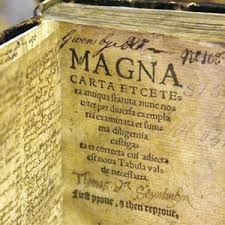 Given by
Nº 108
MAGNA
CARTA ET CETE
ra antiqua statuta nunc no
uiter per diuersa exempla
ria examinata et sum
ma diligentia
castiga
ta et correcta cui adiecta
est noua Tabula val
de necessaria.
Thomas
First proue, & then reproue,